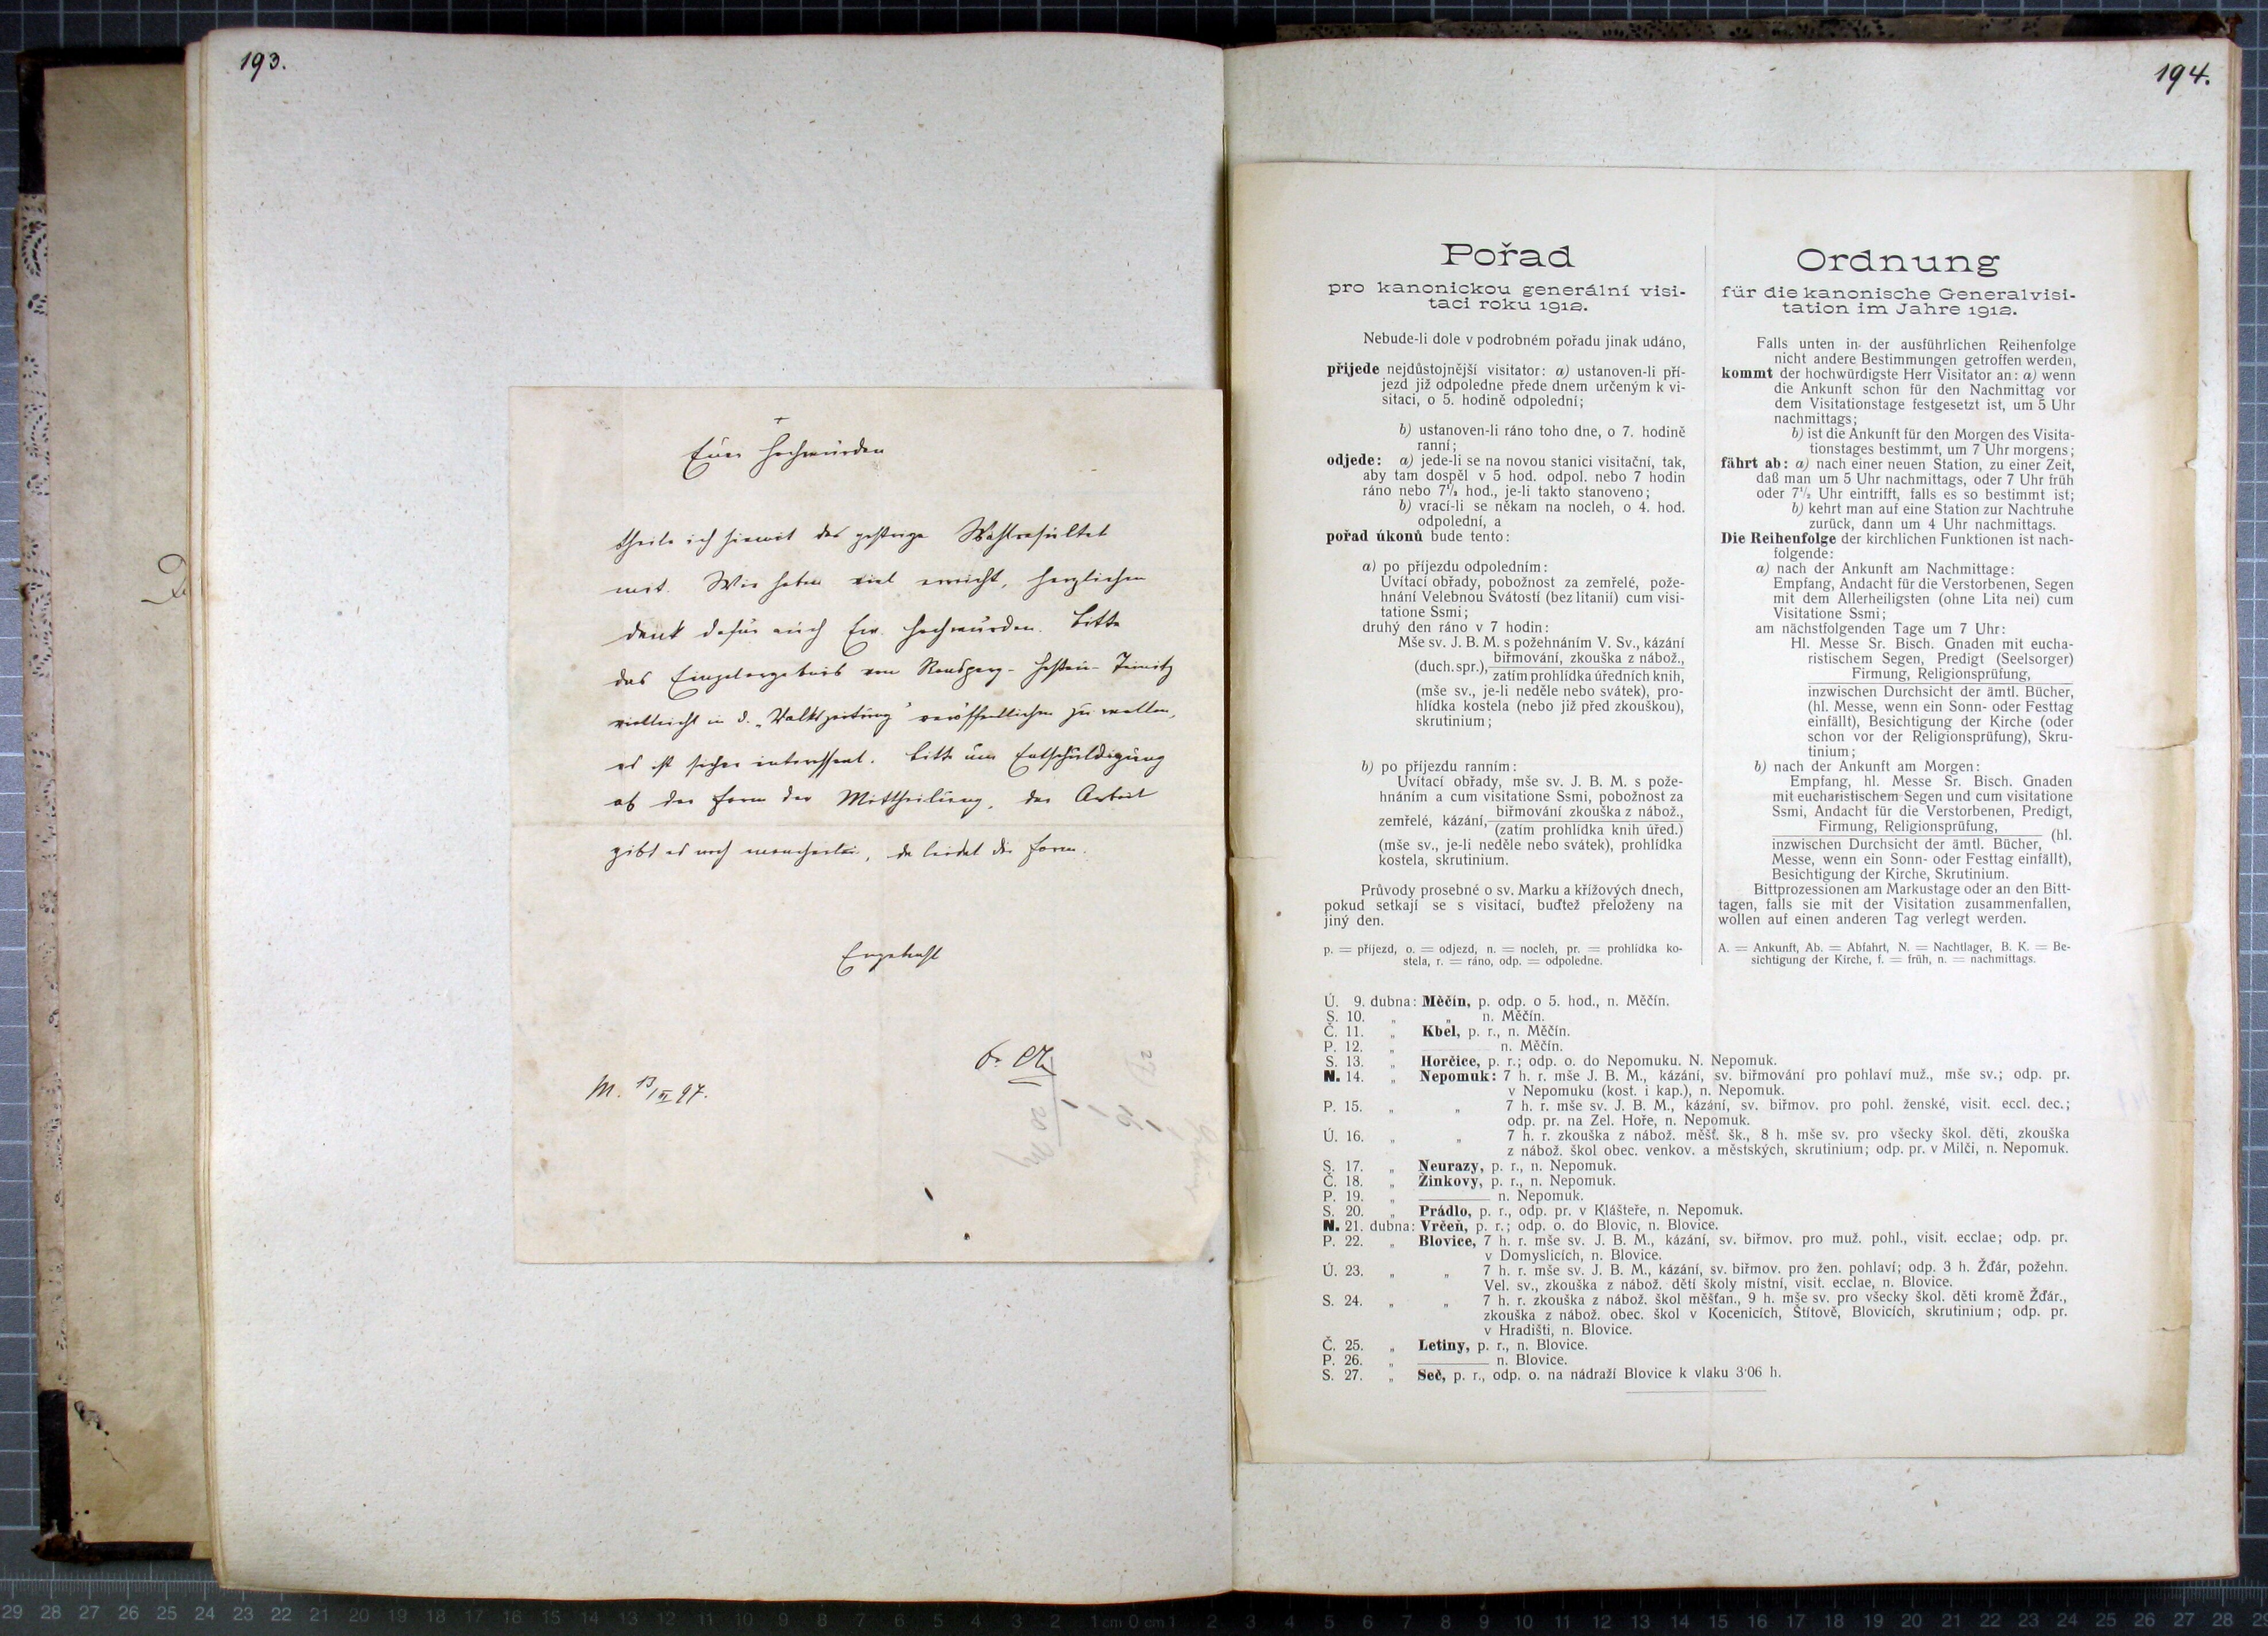 193.
Euer Hochwürden
theile ich hiemit das gestrige Wahlresultat
mit. Wir haben viel erreicht, herzlichen
Dank dafür auch Ew. Hochwürden. Bitte
das Einzelergebnis von Ronsperg - Hostau - Teinitz
vielleicht in d. „Volkszeitung" veröffentlichen zu wollen,
es ist sicher interessant. Bitte um Entschuldigung
ob der Form der Mittheilung, der Arbeit
gibt es noch mancherlei, da leidet die Form.
Ergebenst
M. 97.
194.
Pořad
pro kanonickou generální visi-
taci roku 1912.
Nebude-li dole v podrobném pořadu jinak udáno,
přijede nejdůstojnější visitator: a) ustanoven-li pří-
jezd již odpoledne přede dnem určeným k vi-
sitaci, o 5. hodině odpolední;
b) ustanoven-li ráno toho dne, o 7. hodině
ranní;
odjede: a) jede-li se na novou stanici visitační, tak,
aby tam dospěl v 5 hod. odpol. nebo 7 hodin
ráno nebo 7½ hod., je-li takto stanoveno;
b) vrací-li se někam na nocleh, o 4. hod.
odpolední, a
pořad úkonů bude tento:
a) po příjezdu odpoledním:
Uvítací obřady, pobožnost za zemřelé, pože-
hnání Velebnou Svátostí (bez litanií) cum visi-
tatione Ssmi;
druhý den ráno v 7 hodin:
Mše sv. J. B. M. s požehnáním V. Sv., kázání
(duch. spr.), biřmování, zkouška z nábož.,
zatím prohlídka úředních knih,
(mše sv., je-li neděle nebo svátek), pro-
hlídka kostela (nebo již před zkouškou),
skrutinium;
b) po příjezdu ranním:
Uvítací obřady, mše sv. J. B. M. s pože-
hnáním a cum visitatione Ssmi, pobožnost za
zemřelé, kázání, biřmování zkouška z nábož.,
(zatím prohlídka knih úřed.)
(mše sv., je-li neděle nebo svátek), prohlídka
kostela, skrutinium.
Průvody prosebné o sv. Marku a křížových dnech,
pokud setkají se s visitací, buďtež přeloženy na
jiný den.
p. = příjezd, o. = odjezd, n. = nocleh, pr. = prohlídka ko-
stela, r. = ráno, odp. = odpoledne.
Ordnung
für die kanonische Generalvisi-
tation im Jahre 1912.
Falls unten in der ausführlichen Reihenfolge
nicht andere Bestimmungen getroffen werden,
kommt der hochwürdigste Herr Visitator an: a) wenn
die Ankunft schon für den Nachmittag vor
dem Visitationstage festgesetzt ist, um 5 Uhr
nachmittags;
b) ist die Ankunft für den Morgen des Visita-
tionstages bestimmt, um 7 Uhr morgens;
fährt ab: a) nach einer neuen Station, zu einer Zeit,
daß man um 5 Uhr nachmittags, oder 7 Uhr früh
oder 7½ Uhr eintrifft, falls es so bestimmt ist;
b) kehrt man auf eine Station zur Nachtruhe
zurück, dann um 4 Uhr nachmittags.
Die Reihenfolge der kirchlichen Funktionen ist nach-
folgende:
a) nach der Ankunft am Nachmittage:
Empfang, Andacht für die Verstorbenen, Segen
mit dem Allerheiligsten (ohne Lita nei) cum
Visitatione Ssmi;
am nächstfolgenden Tage um 7 Uhr:
Hl. Messe Sr. Bisch. Gnaden mit eucha-
ristischem Segen, Predigt (Seelsorger)
Firmung, Religionsprüfung,
inzwischen Durchsicht der ämtl. Bücher,
(hl. Messe, wenn ein Sonn- oder Festtag
einfällt), Besichtigung der Kirche (oder
schon vor der Religionsprüfung), Skru-
tinium;
b) nach der Ankunft am Morgen:
Empfang, hl. Messe Sr. Bisch. Gnaden
mit eucharistischem Segen und cum visitatione
Ssmi, Andacht für die Verstorbenen, Predigt,
Firmung, Religionsprüfung,
inzwischen Durchsicht der ämtl. Bücher, (hl.
Messe, wenn ein Sonn- oder Festtag einfällt),
Besichtigung der Kirche, Skrutinium.
Bittprozessionen am Markustage oder an den Bitt-
tagen, falls sie mit der Visitation zusammenfallen,
wollen auf einen anderen Tag verlegt werden.
A. = Ankunft, Ab. = Abfahrt, N. = Nachtlager, B. K. = Be-
sichtigung der Kirche, f. = früh, n. = nachmittags.
Ú. 9. dubna: Měčín, p. odp. o 5. hod., n. Měčín.
S. 10. „ „ n. Měčín.
Č. 11. „ Kbel, p. r., n. Měčín.
P. 12. „ n. Měčín.
S. 13. „ Horčice, p. r.; odp. o. do Nepomuku. N. Nepomuk.
N. 14. „ Nepomuk: 7 h. r. mše J. B. M., kázání, sv. biřmování pro pohlaví muž., mše sv.; odp. pr.
v Nepomuku (kost. i kap.), n. Nepomuk.
P. 15. „ „ 7 h. r. mše sv. J. B. M., kázání, sv. biřmov. pro pohl. ženské, visit. eccl. dec.;
odp. pr. na Zel. Hoře, n. Nepomuk.
Ú. 16. „ „ 7 h. r. zkouška z nábož. měšť. šk., 8 h. mše sv. pro všecky škol. děti, zkouška
z nábož. škol obec. venkov. a městských, skrutinium; odp. pr. v Milči, n. Nepomuk.
S. 17. „ Neurazy, p. r., n. Nepomuk.
Č. 18. „ Žinkovy, p. r., n. Nepomuk.
P. 19. „ n. Nepomuk.
S. 20. „ Prádlo, p. r., odp. pr. v Klášteře, n. Nepomuk.
N. 21. dubna: Vrčeň, p. r.; odp. o. do Blovic, n. Blovice.
P. 22. „ Blovice, 7 h. r. mše sv. J. B. M., kázání, sv. biřmov. pro muž. pohl., visit. ecclae; odp. pr.
v Domyslicích, n. Blovice.
Ú. 23. „ „ 7 h. r. mše sv. J. B. M., kázání, sv. biřmov. pro žen. pohlaví; odp. 3 h. Žďár, požehn.
Vel. sv., zkouška z nábož. dětí školy místní, visit. ecclae, n. Blovice.
S. 24. „ „ 7 h. r. zkouška z nábož. škol měšťan., 9 h. mše sv. pro všecky škol. děti kromě Žďár.,
zkouška z nábož. obec. škol v Kocenicích, Štítově, Blovicích, skrutinium; odp. pr.
v Hradišti, n. Blovice.
Č. 25. „ Letiny, p. r., n. Blovice.
P. 26. „ n. Blovice.
S. 27. „ Seč, p. r., odp. o. na nádraží Blovice k vlaku 3·06 h.